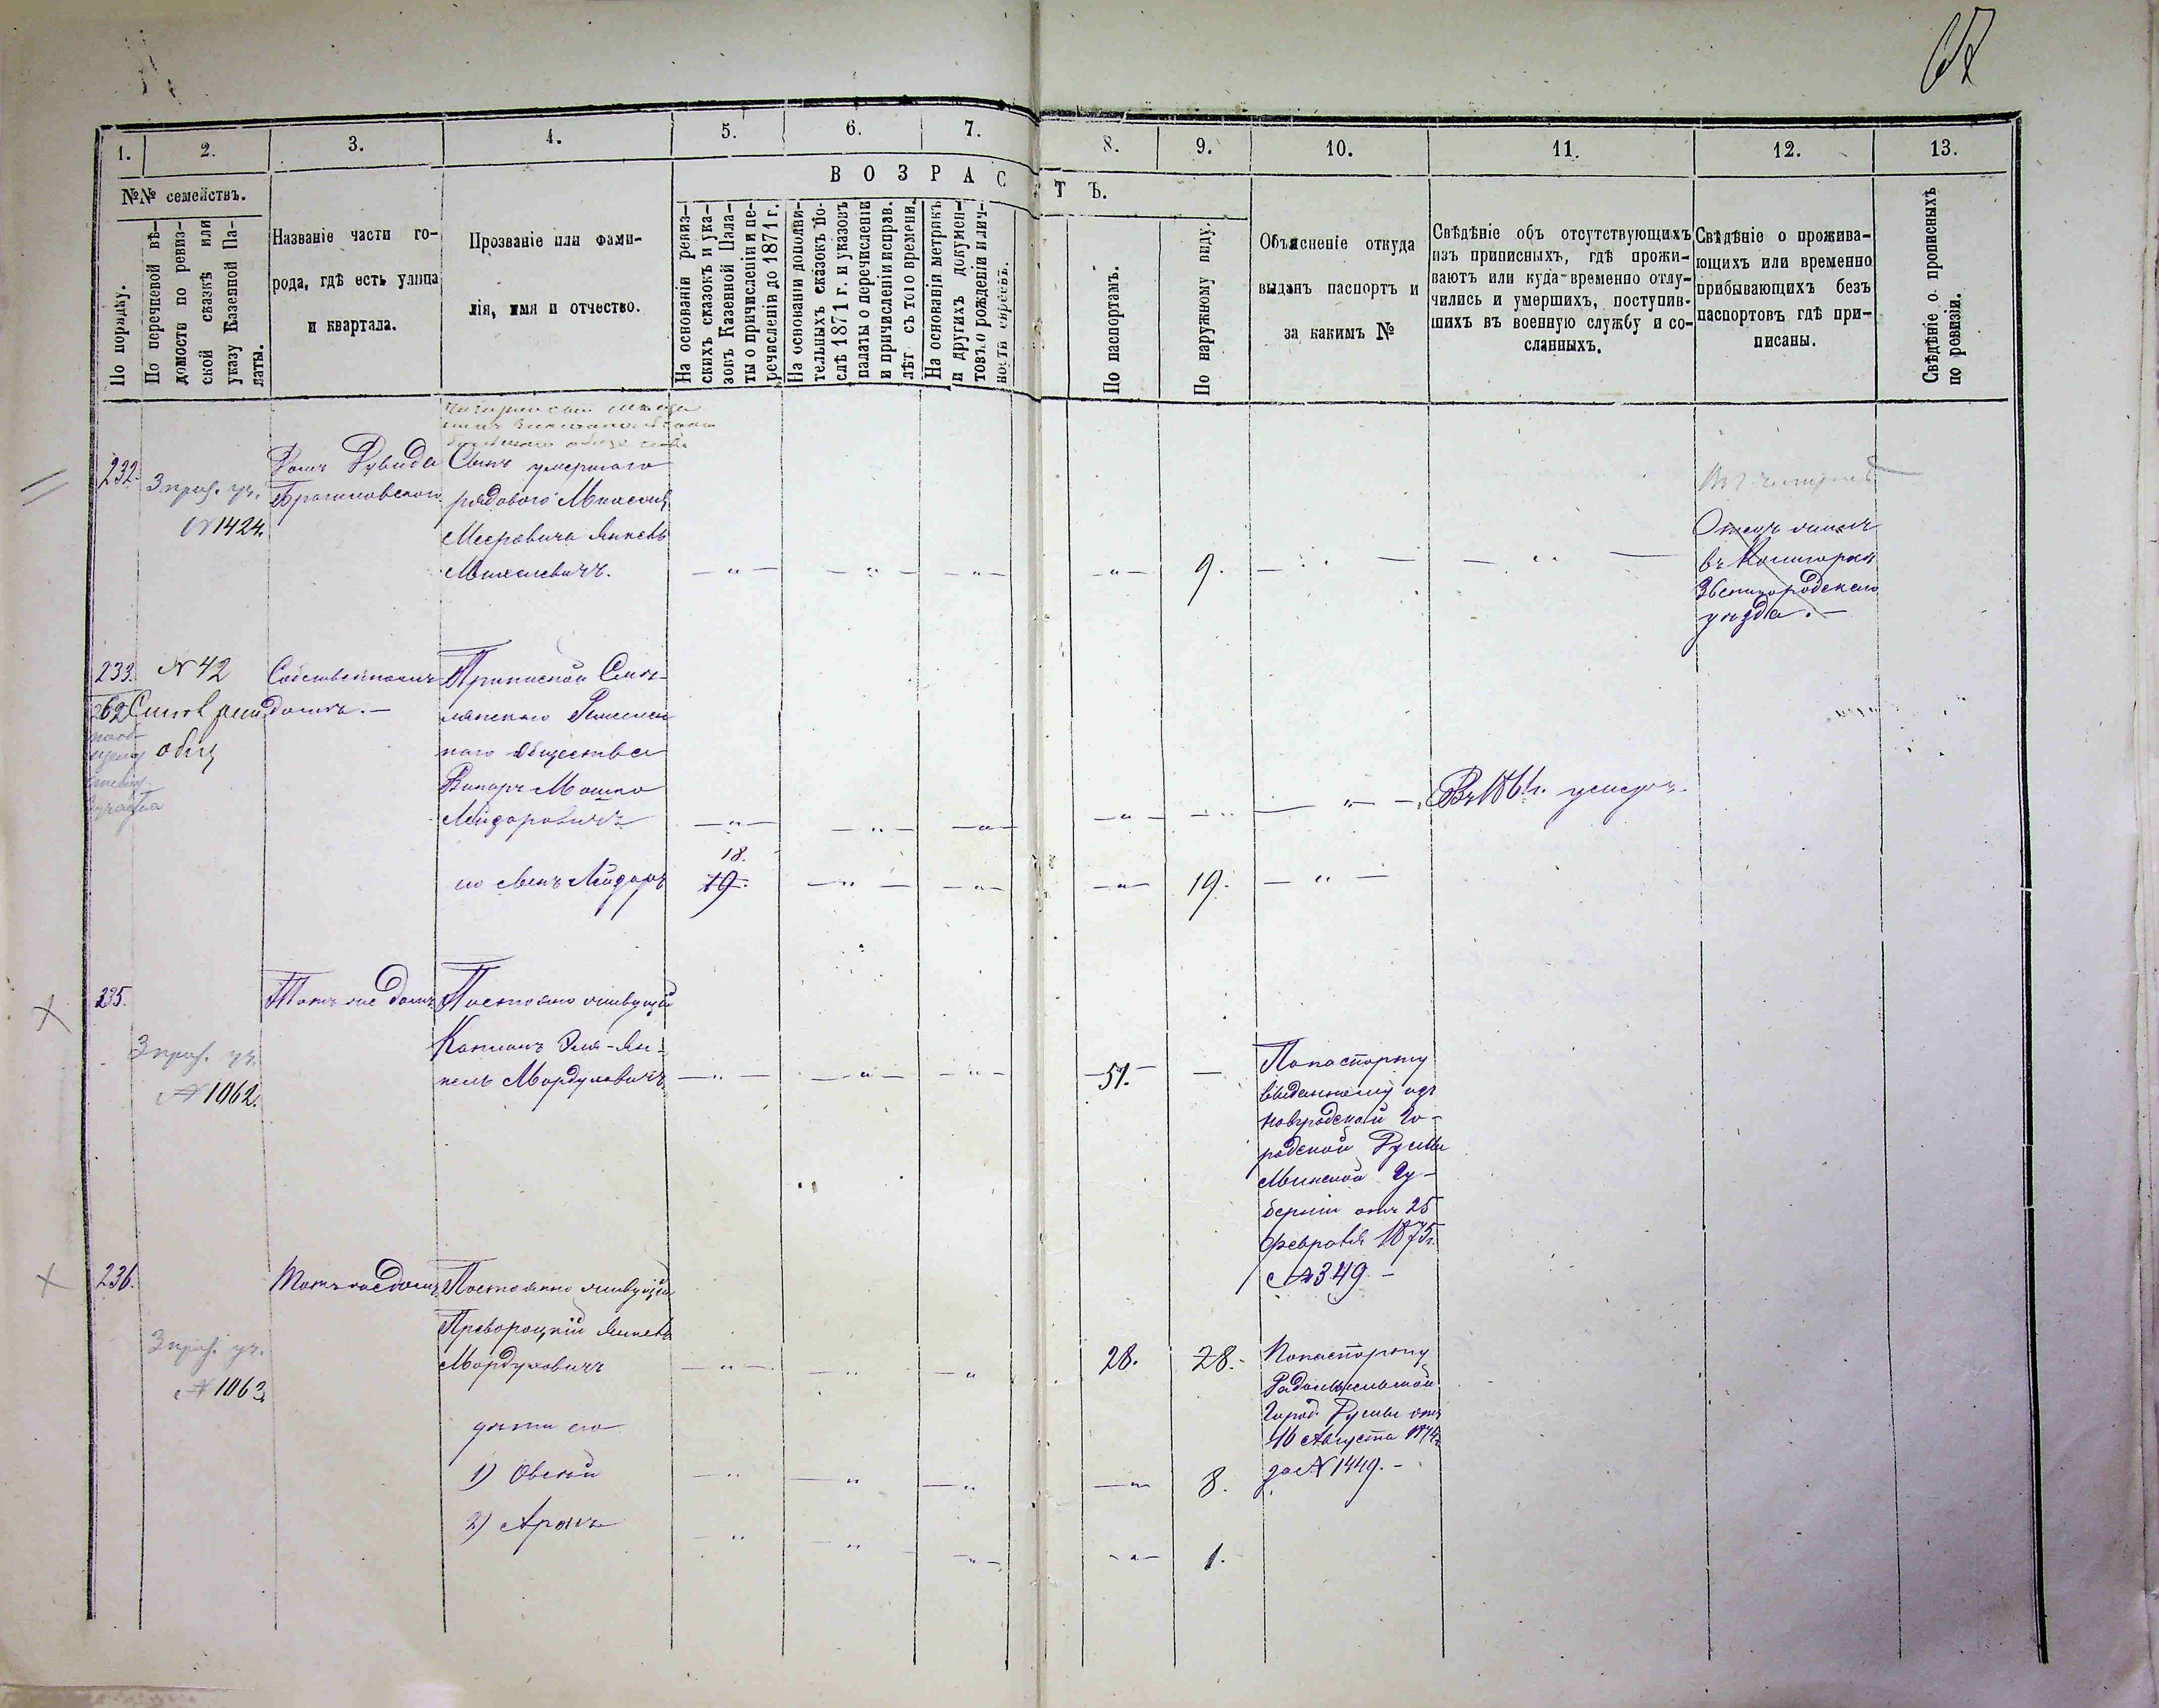 67
1. 2. 3. 4. 5. 6. 7. 8. 9. 10. 11. 12. 13.
№№ семействъ.
По порядку.
По перечневой вѣ-
домости по ревиз-
ской сказкѣ или
указу Казенной Па-
латы.
Названіе части го-
рода, гдѣ есть улица
и квартала.
Прозваніе или фами-
лія, имя и отчество.
ВОЗРАСТЪ.
На основаніи ревиз-
скихъ сказокъ и ука-
зовъ Казенной Пала-
ты о причисленіи и пе-
речисленіи до 1871 г.
На основаніи дополни-
тельныхъ сказокъ по-
слѣ 1871 г. и указовъ
палаты о перечисленіи
и причисленіи исправ.
лѣт съ того времени.
На основаніи метрикъ
и другихъ докумен-
товъ о рожденіи и лич-
ности евреевъ.
По паспортамъ.
По наружному виду.
Объясненіе откуда
выданъ паспортъ и
за какимъ №
Свѣдѣніе объ отсутствующихъ
изъ приписныхъ, гдѣ прожи-
ваютъ или куда-временно отлу-
чились и умершихъ, поступив-
шихъ въ военную службу и со-
сланныхъ.
Свѣдѣніе о прожива-
ющихъ или временно
прибывающихъ безъ
паспортовъ гдѣ при-
писаны.
Свѣдѣніе о прописныхъ
по ревизіи.
232.
3 приз. уч.
№ 1424.
Домъ Дувида
Сынъ умершаго
рядового
Мееровича Янкель
9.
Отецъ
въ
Звенигородскаго
уѣзда. —
233.
№ 42
262
общ
Собственномъ
домъ. —
Приписной
общества
Мошко
Лейзоровичъ
Въ 1861 г. умеръ.
его сынъ Лейзоръ
18.
19.
19.
235.
3 приз. уч.
№ 1062.
Тотъ же домъ
Постоянно живущій
Капланъ Эля-Ян-
кель Мордуховичъ
51.
По паспорту
выданному изъ
Новградской Го-
родской Думы
Минской Гу-
берніи отъ 25
февраля 1875 г.
№ 349. —
236.
3 приз. уч.
№ 1063
Тотъ же домъ
Постоянно живущій
Превороцкій Янкель
Мордуховичъ
28.
28.
По паспорту
Радомысльской
Город. Думы отъ
16 Августа 1874 г.
за № 1449. —
дѣти его
1) Овсей
8.
2) Аронъ
1.